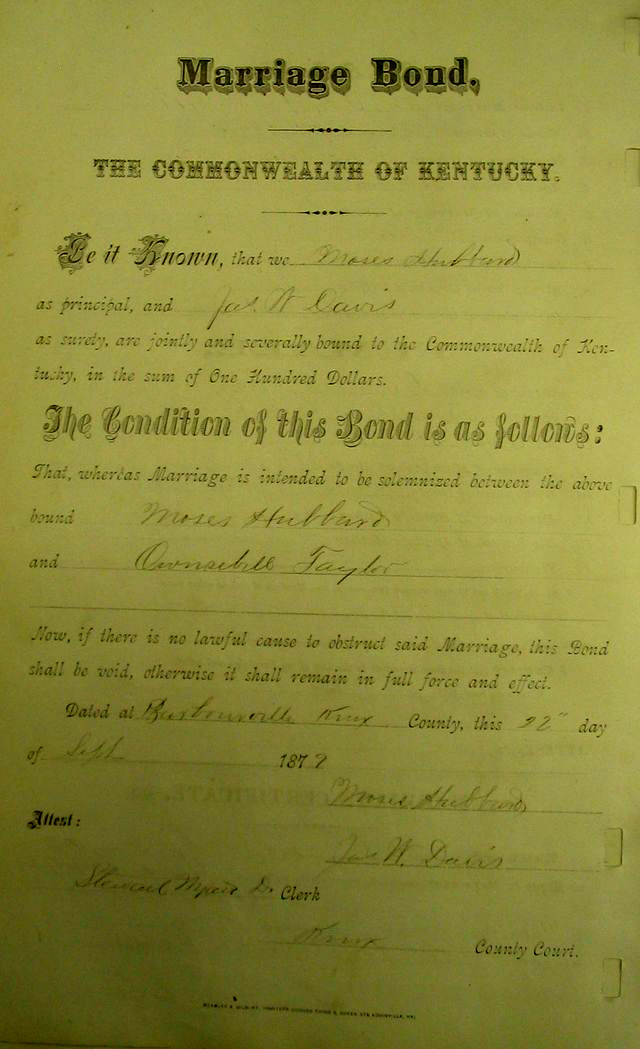 Marriage Bond.
THE COMMONWEALTH OF KENTUCKY.
Be it Known, that we Moses Hubbard
as principal, and Jas W Davis
as surety, are jointly and severally bound to the Commonwealth of Ken-
tucky, in the sum of One Hundred Dollars.
The Condition of this Bond is as follows:
That, whereas Marriage is intended to be solemnized between the above
bound Moses Hubbard
and Taylor
Now, if there is no lawful cause to obstruct said Marriage, this Bond
shall be void, otherwise it shall remain in full force and effect.
Dated at Barbourville Knox County, this 22" day
of Sept 187
Moses Hubbard
Attest:
Jas W. Davis
Clerk
Knox County Court.